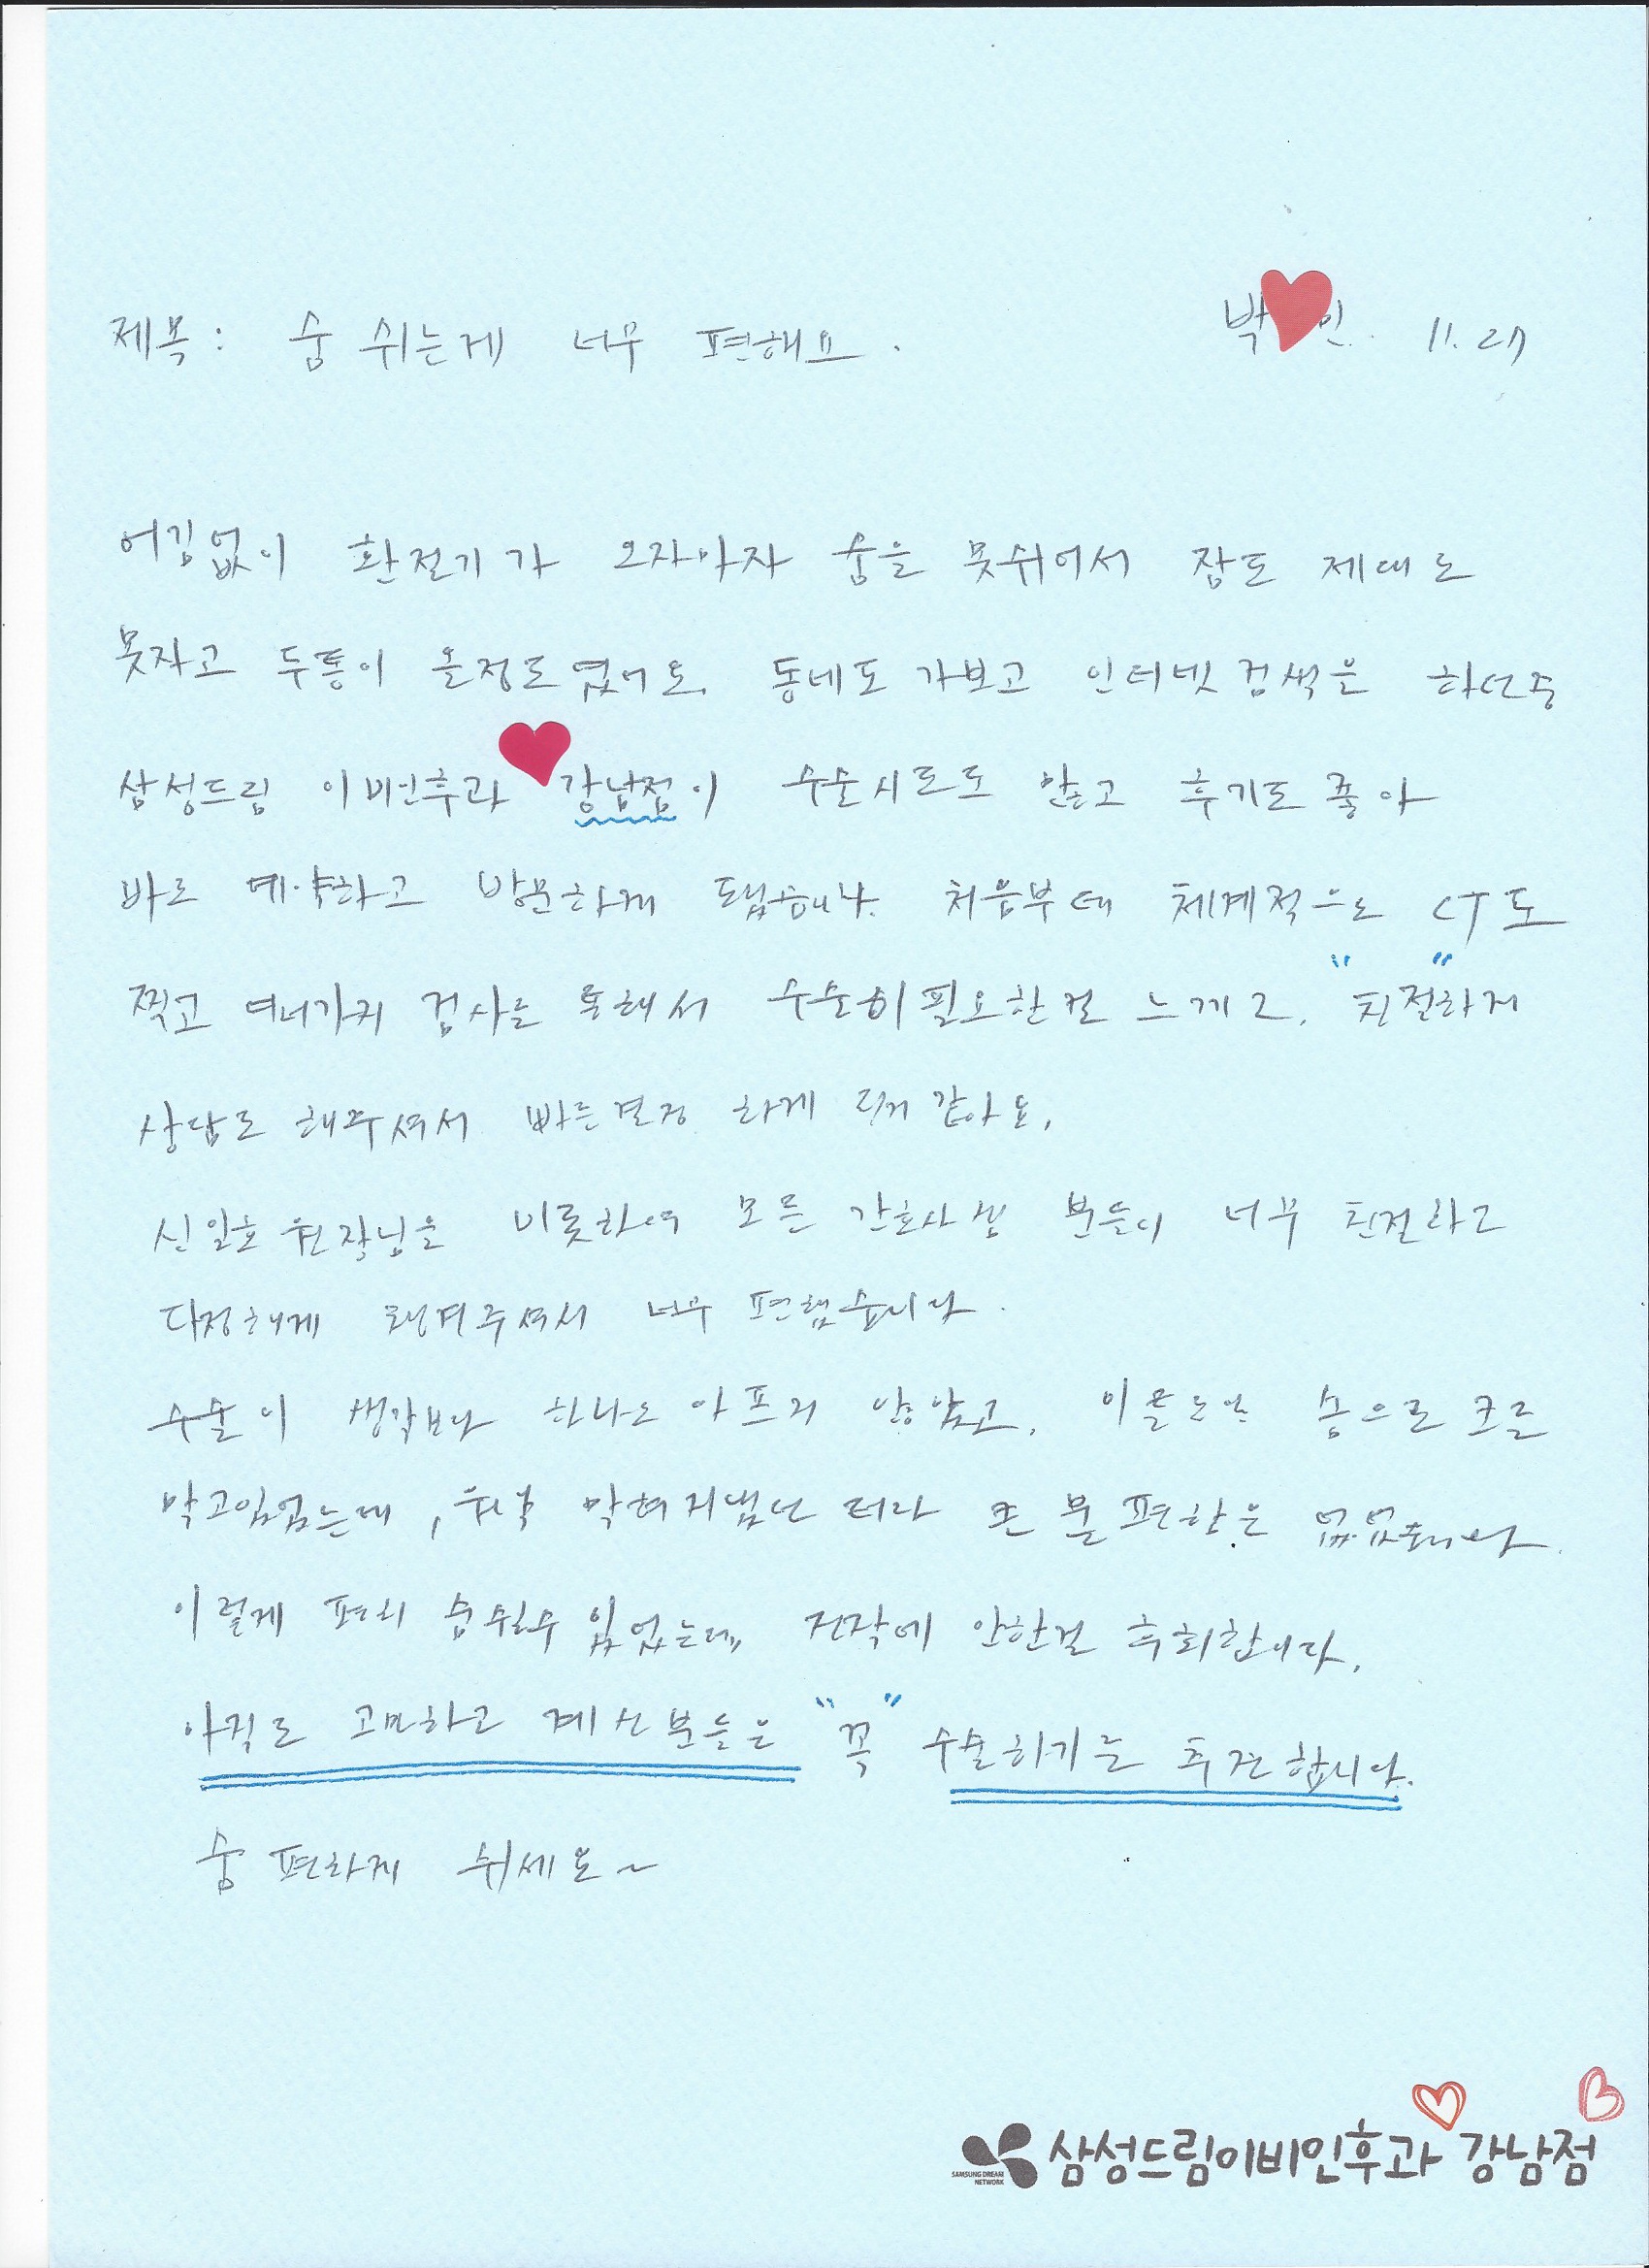 제목: 숨 쉬는게 너무 편해요.
박 민. 11.27
어김없이 환절기가 오자마자 숨을 못쉬어서 잠도 제대로
못자고 두통이 올정도였어요. 동네도 가보고 인터넷검색을 하던중
삼성드림 이비인후과 강남점이 수술시로도 많고 후기도 좋아
바로 예약하고 방문하게 됐습니다. 처음부터 체계적으로 CT도
찍고 여러가지 검사를 통해서 수술이 필요한걸 느끼고, "친절하게"
상담도 해주셔서 빠른결정 하게 된거 같아요.
신일호 원장님을 비롯하여 모든 간호사쌤 분들이 너무 친절하고
다정하게 챙겨주셔서 너무 편했습니다.
수술이 생각보다 하나도 아프지 않았고, 이틀동안 솜으로 코를
막고있었는데, 워낙 막혀지냈던 터라 큰 불편함은 없었습니다.
이렇게 편히 숨쉴수 있었는데, 진작에 안한걸 후회합니다.
아직도 고민하고 계신분들은 "꼭" 수술하기를 추천합니다.
숨 편하게 쉬세요~
SAMSUNG DREAM
NETWORK
삼성드림이비인후과 강남점